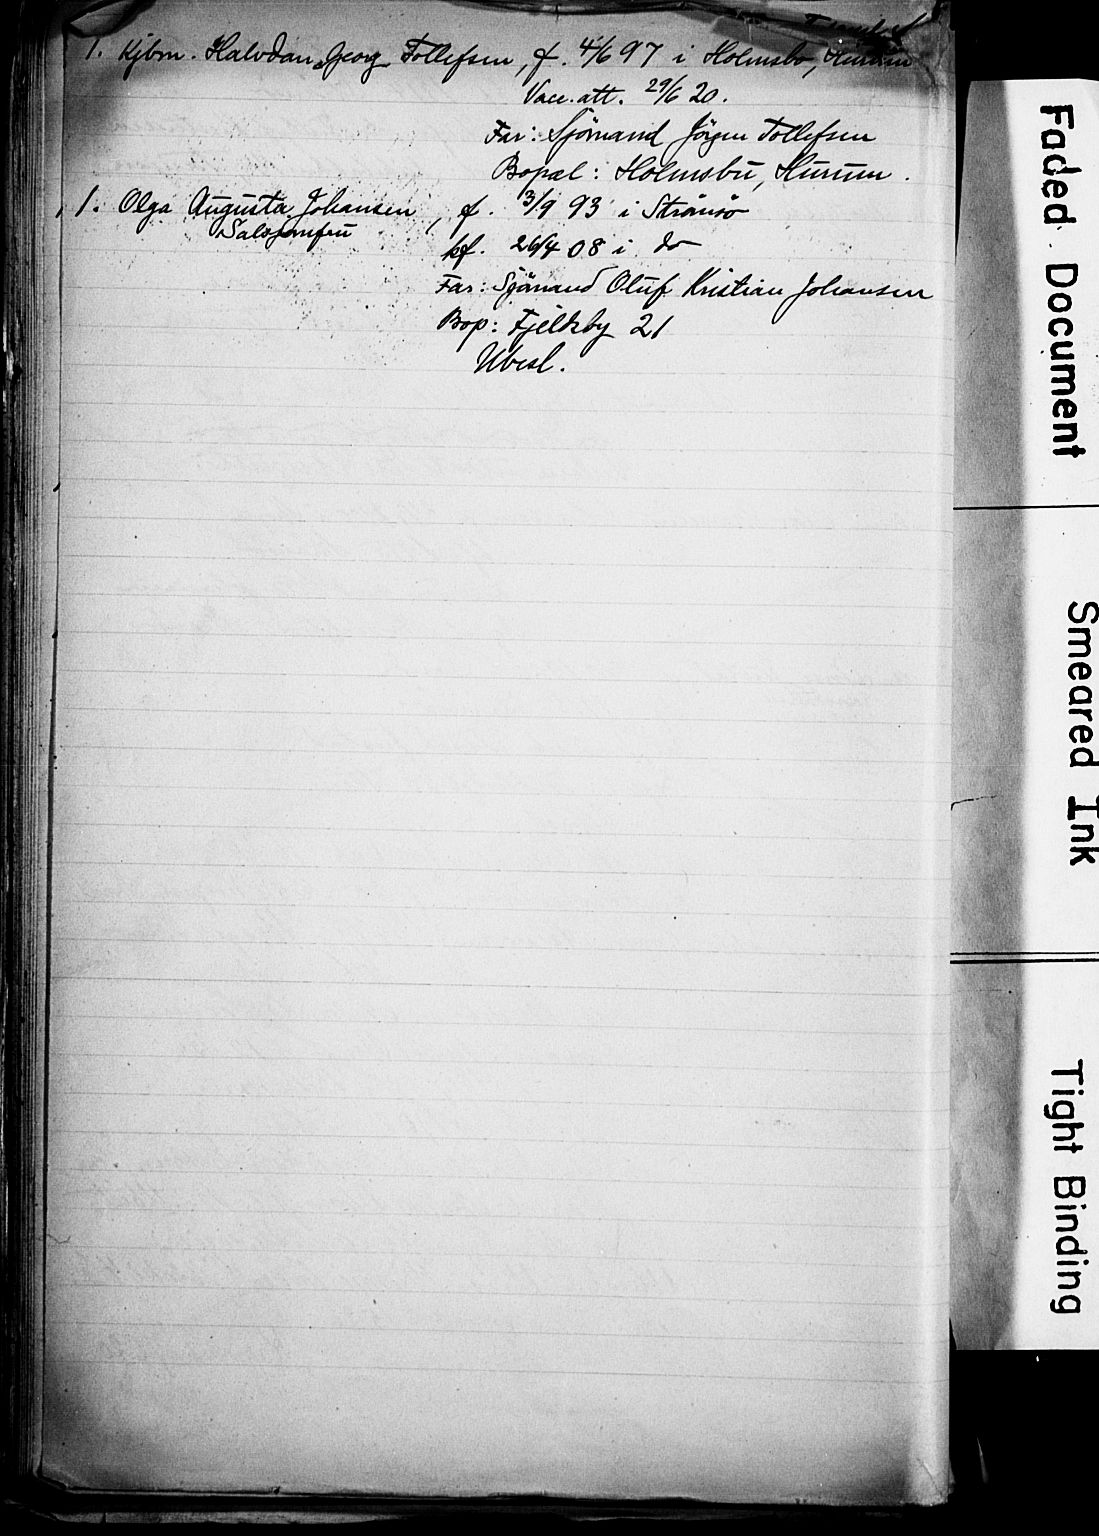 1. Kjbm. Halvdan Georg Tollefsen, f. 4/6 97 i Holmsbo, Hurum
Vacc. att. 29/6 20.
Far: Sjömand Jörgen Tollefsen
Bopæl: Holmsbu, Hurum.
1. Olga Augusta Johansen, f. 3/9 93 i Strömsö
Salsjomfru
kf. 26/4 08 i do
Far: Sjömand Oluf Kristian Johansen
Bop: Fjeldsby 21
Ubesl.
Faded Document
Smeared Ink
Tight Binding